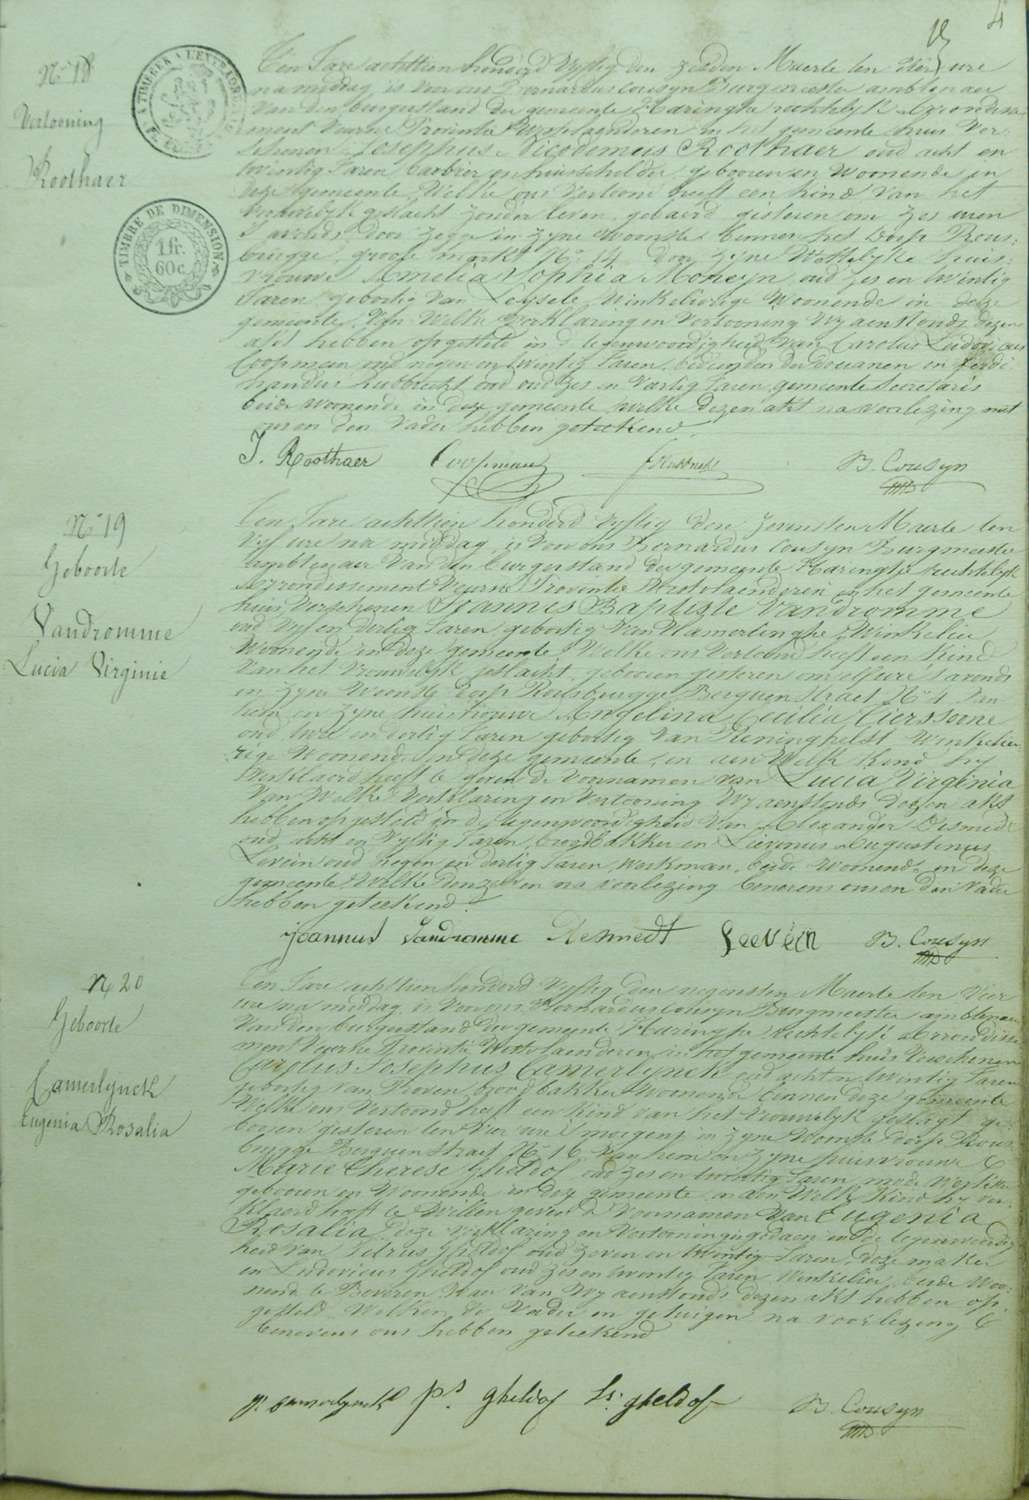 4
N° 18
Vertooning
Roothaer
TIMBRE DE DIMENSION
1 fr.
60 c.
Ten Jare achttien honderd vyftig den zesden Maerte ten vier ure
na middag is voor ons Bernardus Cousyn Burgmeester ambtenaer
van den burgerstand der gemeente Haringhe rechtelyk arrondisse
ment Veurne Provintie Westvlaenderen in het gemeente huis ver-
schenen Josephus Nicodemus Roothaer oud acht en
twintig Jaren barbier en huisschilder, gebooren en woonende in
deze gemeente, Welke ons vertoond heeft een kind van het
geslacht zonder leven, gebaerd gisteren om zes uren
s'avonds door zegge in zyne woonste binnen het Dorp Rous-
brugge, groote markt N° 14 door zyne wettelyke huis-
vrouwe Amelia Sophia Moneyn oud zes en twintig
Jaren geboortig van Leysele, Winkelierige woonende in deze
gemeente, Van welke verklaring en vertooning wy aenstonds dezen
akt hebben opgesteld in de tegenwoordigheid van Carolus Ludovicus
Coopman oud negen en twintig Jaren, bedienden der douanen en Ferdi
nandus Hubrecht oud zes en veertig Jaren gemeente secretaris
beide woonende in deze gemeente welke dezen akt na voorlezing met
ons en den vader hebben geteekend.
J. Roothaer Coopman B. Cousyn
N° 19
Geboorte
Vandromme
Lucia Virginie
Ten Jare achttien honderd vyftig den Maerte ten
vyf ure na middag is voor ons Bernardus Cousyn Burgmeester
ambtenaer van den burgerstand der gemeente Haringhe rechtelyk
arrondissement Veurne Provintie Westvlaenderen in het gemeente
huis verschenen Joannes Baptiste Vandromme
oud vyf en dertig Jaren, geboortig van Vlamertinghe, Winkelier
woonende in deze gemeente, Welke ons vertoond heeft een kind
van het vrouwelyk geslacht, gebooren gisteren om elf ure s'avonds
in zyne woonste dorp Rousbrugge Berguen straet N° 4 van
hem en zyne huisvrouwe Angelina Cecilia Tierssoone
oud twee en dertig Jaren geboortig van Reninghelst Winkelie-
rige woonende in deze gemeente, en aen Welk kind hy
verklaerd heeft te geven de voornamen van Lucia Virginia
Van Welke verklaring en vertooning wy aenstonds dezen akt
hebben opgesteld in de tegenwoordigheid van Alexander Desmedt
oud acht en vyftig Jaren, broodbakker en Livinus Augustinus
Levein oud negen en dertig Jaren, Werkman, beide woonende in deze
gemeente Welke dezen na voorlezing benevens ons en den vader
hebben geteekend.
Joannes Vandromme Desmedt Leevein B. Cousyn
N° 20
Geboorte
Camerlynck
Eugenia Rosalia
Ten Jare acht tien honderd vyftig den negensten Maerte ten vier
ure na middag is voor ons Bernardus Cousyn Burgmeester ambtenaer
van den burgerstand der gemeente Haringhe rechtelyk arrondisse
ment Veurne Provintie Westvlaenderen, in het gemeente huis verschenen
Carolus Josephus Camerlynck oud acht en twintig Jaren
geboortig van Proven broodbakker woonende binnen deze gemeente
Welke ons vertoond heeft een kind van het vrouwelyk geslagt ge-
booren gisteren ten vier ure s'morgens in zyne woonste dorpe Rous-
brugge Berguen straet N° 16 van hem en zyne huisvrouwe
Marie Therese Gheldof, oud zes en twintig Jaren,
gebooren en woonende in deze gemeente, en aen Welk kind hy ver-
klaerd heeft te willen geven de voornamen van Eugenia
Rosalia, deze verklaring en vertooning gedaen in de tegenwoordig
heid van Petrus Gheldof oud zeven en twintig Jaren,
en Ludovicus Gheldof oud zes en twintig Jaren Winkelier, beide woo-
nende te Beveren Waer van wy aenstonds dezen akt hebben op-
gesteld Welken de vader en getuigen na voorlezing
benevens ons hebben geteekend
Camerlynck Ps. Gheldof Ls. gheldof B. Cousyn